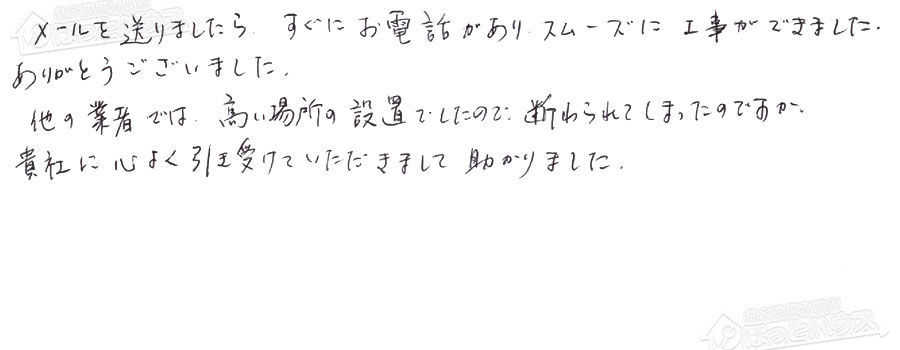 メールを送りましたら、すぐにお電話がありスムーズに工事ができました。
ありがとうございました。
他の業者では、高い場所の設置でしたので、断わられてしまったのですが、
貴社に心よく引き受けていただきまして助かりました。
ほっとハウス